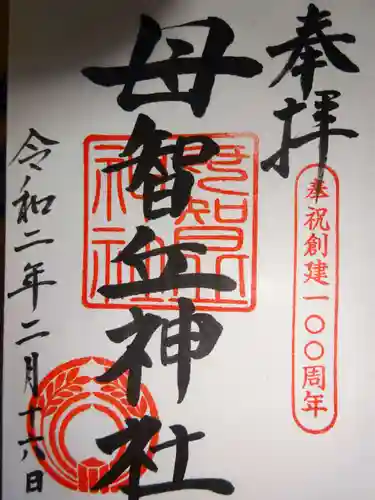 奉拝
奉祝創建一〇〇周年
母智丘神社
母智丘神社
令和二年二月十六日